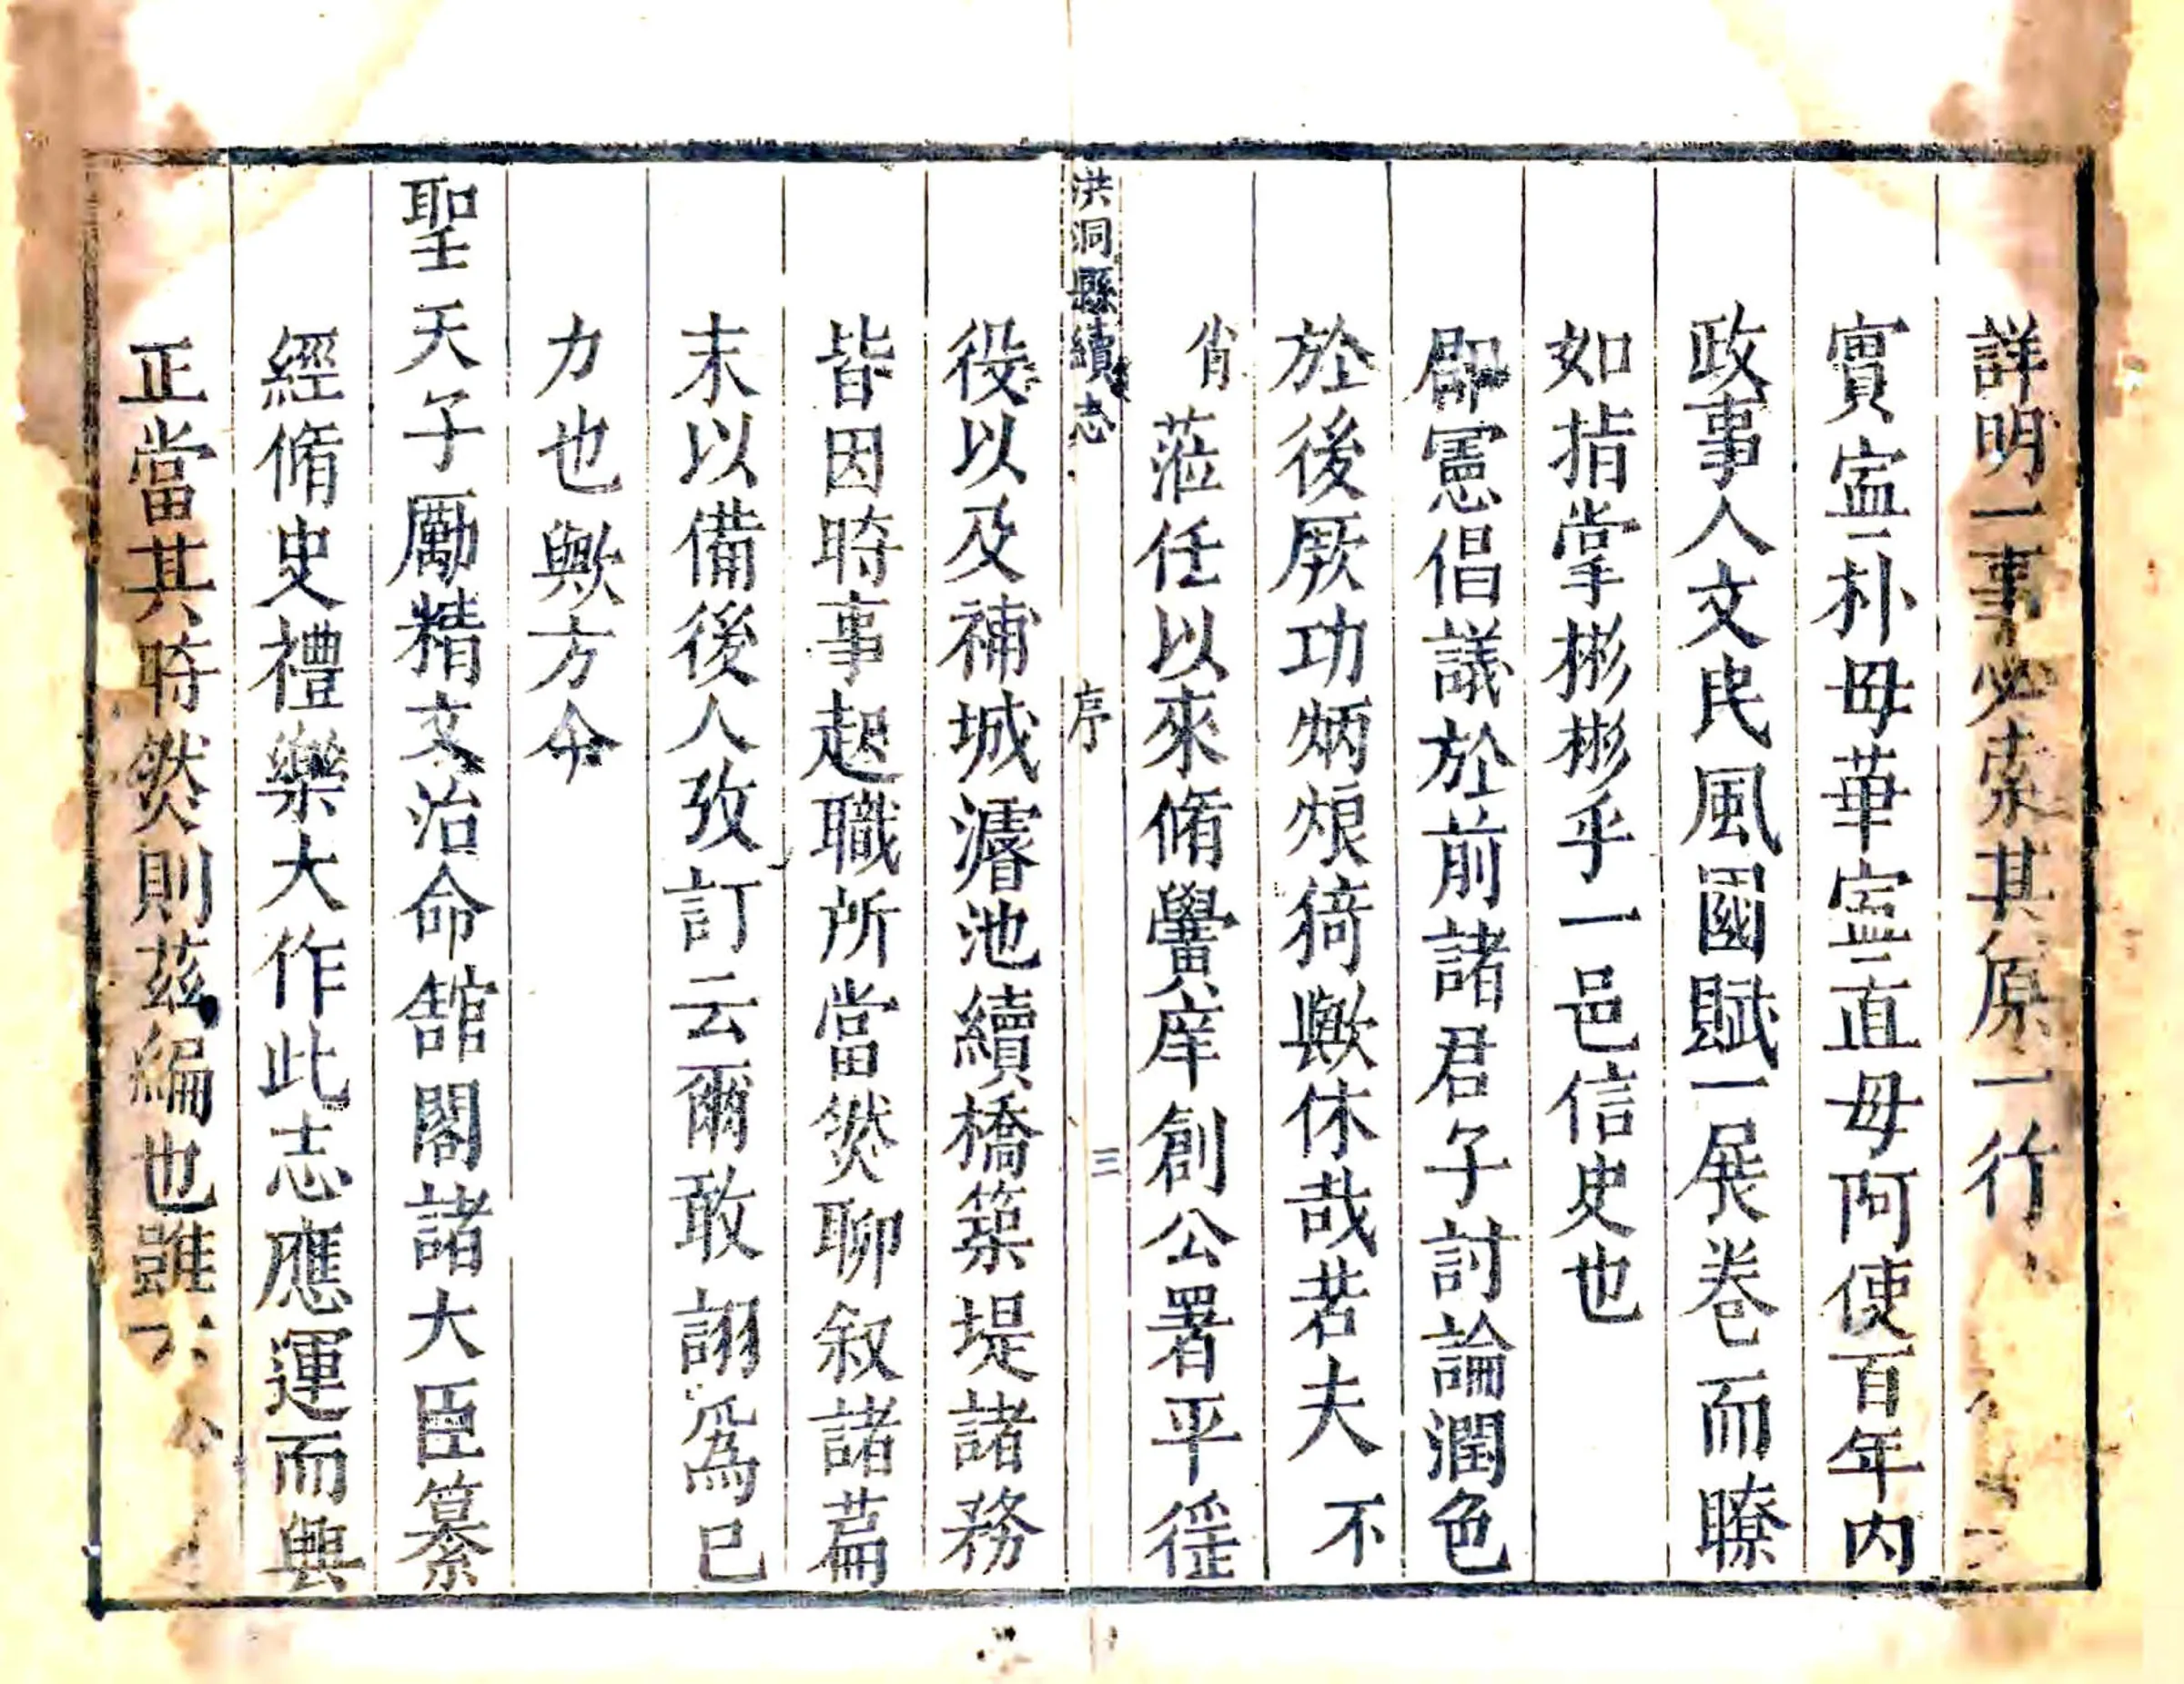 詳明一事必索其原一行
實寍朴毋華寍直毋阿使百年内
政事人文民風國賦一展卷而瞭
如指掌彬彬乎一邑信史也
郡憲倡議於前諸君子討論潤色
於後厥功炳烺猗歟休哉若夫不
肖蒞任以來脩黌庠創公署平徭
洪洞縣續志 序 三
役以及補城濬池續橋築堤諸務
皆因時事起職所當然聊叙諸篇
末以備後人攷訂云爾敢詡爲己
力也歟方今
聖天子勵精文治命舘閣諸大臣纂
經脩史禮樂大作此志應運而興
正當其時然則茲編也雖